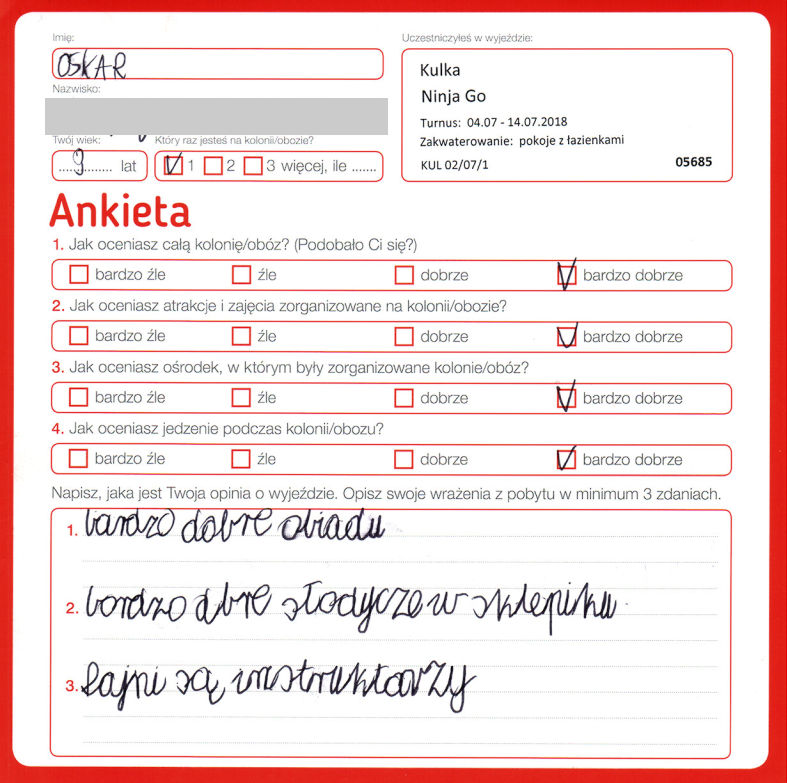 Imię:
OSKAR
Nazwisko:
Twój wiek:
....9........ lat
Który raz jesteś na kolonii/obozie?
1 2 3 więcej, ile .......
Uczestniczyłeś w wyjeździe:
Kulka
Ninja Go
Turnus: 04.07 - 14.07.2018
Zakwaterowanie: pokoje z łazienkami
KUL 02/07/1 05685
Ankieta
1. Jak oceniasz całą kolonię/obóz? (Podobało Ci się?)
bardzo źle źle dobrze bardzo dobrze
2. Jak oceniasz atrakcje i zajęcia zorganizowane na kolonii/obozie?
bardzo źle źle dobrze bardzo dobrze
3. Jak oceniasz ośrodek, w którym były zorganizowane kolonie/obóz?
bardzo źle źle dobrze bardzo dobrze
4. Jak oceniasz jedzenie podczas kolonii/obozu?
bardzo źle źle dobrze bardzo dobrze
Napisz, jaka jest Twoja opinia o wyjeździe. Opisz swoje wrażenia z pobytu w minimum 3 zdaniach.
1. bardzo dobre obiadu
2. bordzo dbre słodycze w sklepiku
3. fajni są instruktarzy